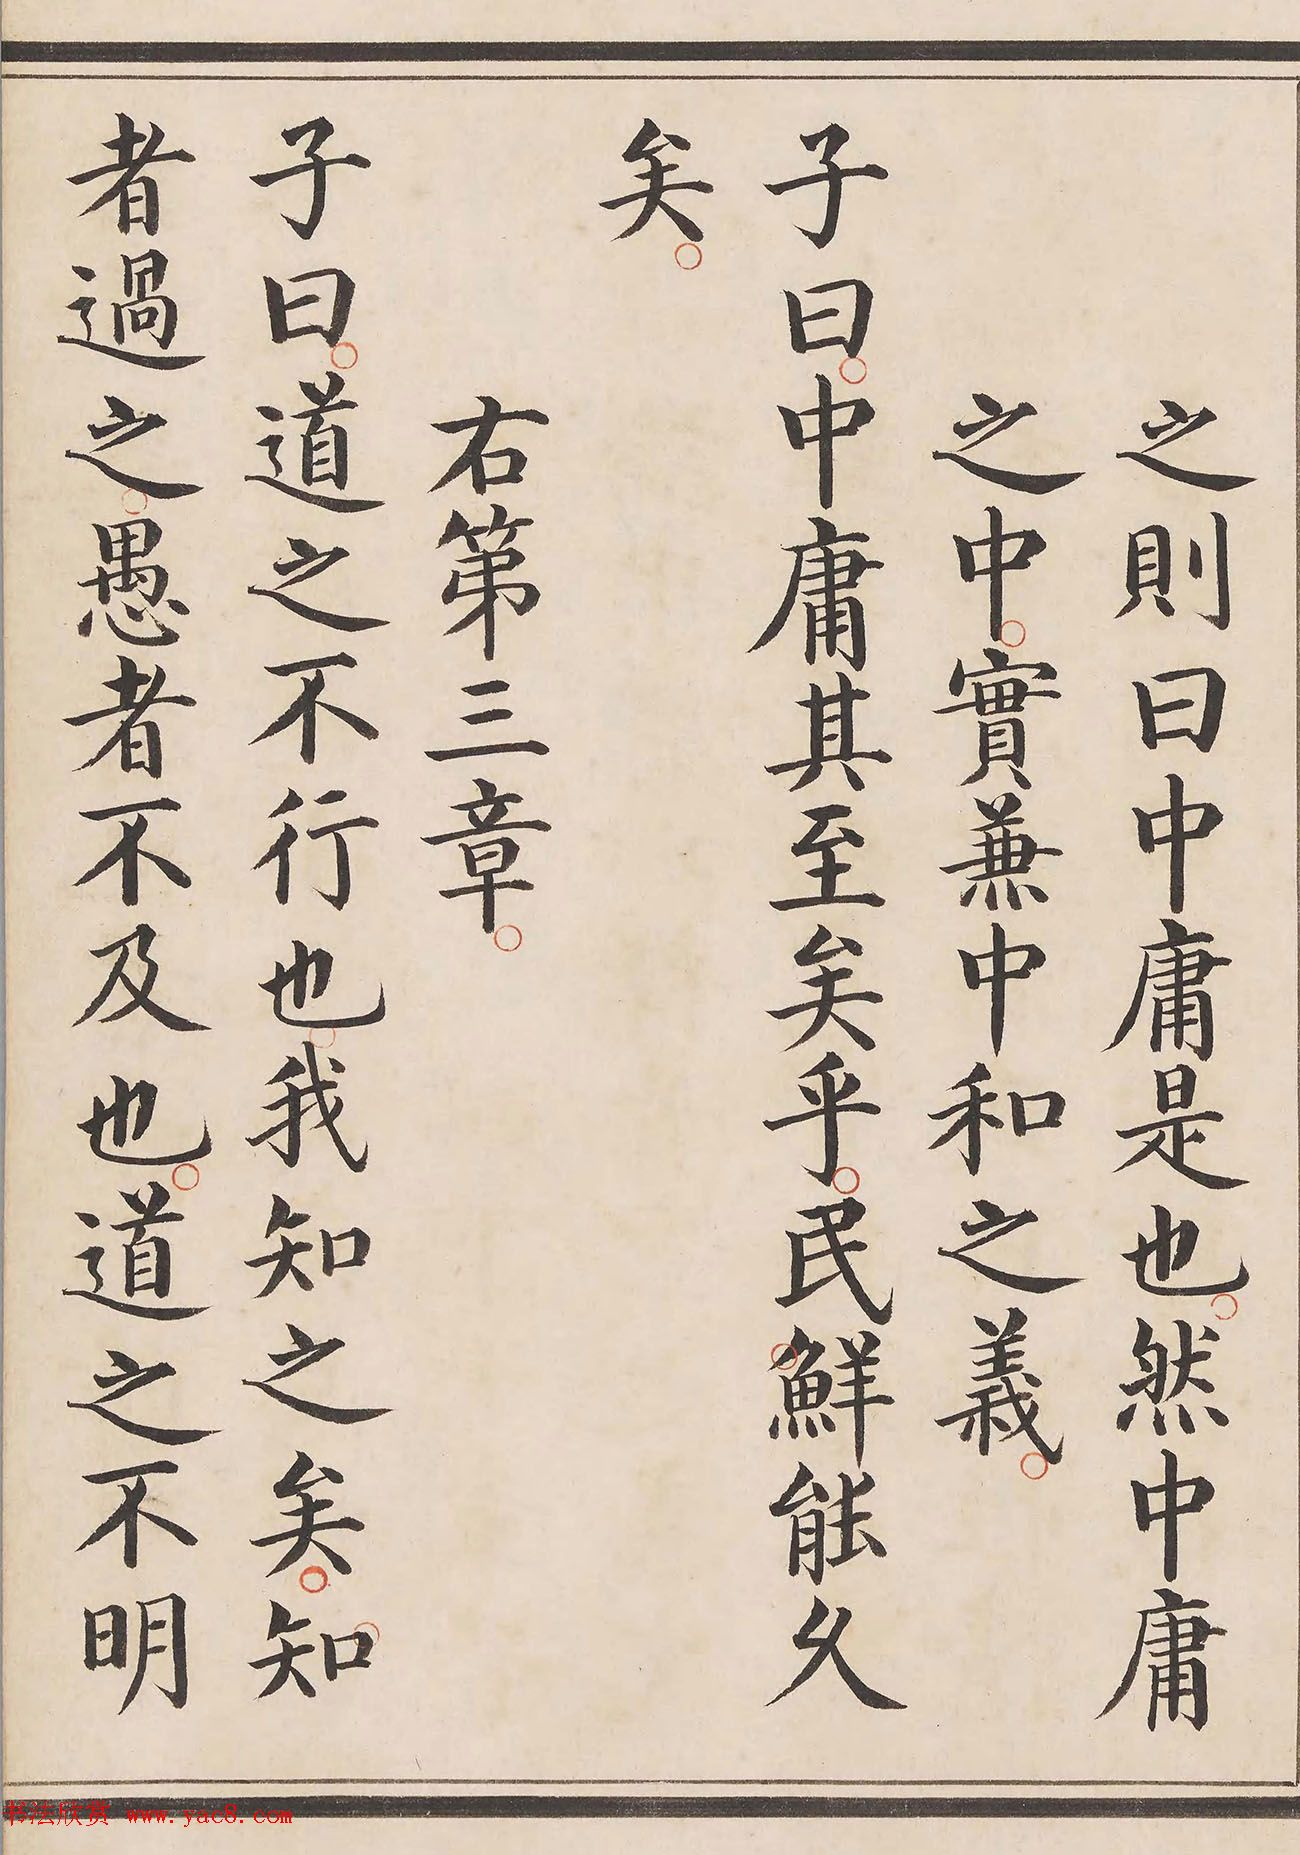 之則曰中庸是也然中庸
之中實兼中和之義
子曰中庸其至矣乎民鮮能久
矣
右第三章
子曰道之不行也我知之矣知
者過之愚者不及也道之不明
书法欣赏 www.yac8.com